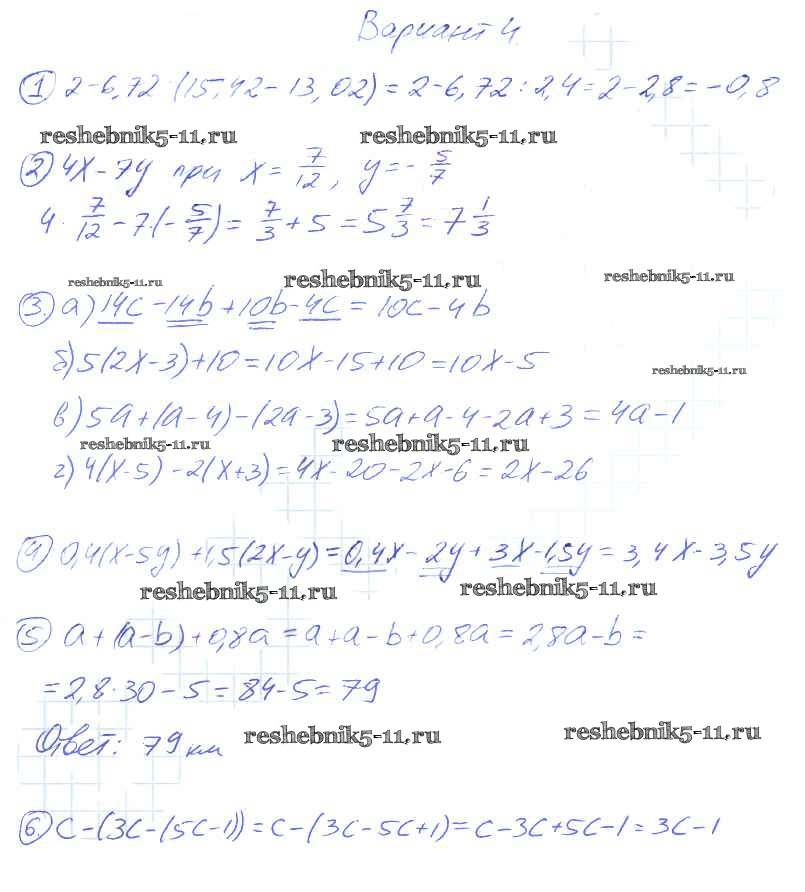 Вариант 4.
① 2-6,72 : (15,42-13,02) = 2-6,72 : 2,4 = 2-2,8 = -0,8
reshebnik5-11.ru reshebnik5-11.ru
② 4x-7y при x = 7/12, y = -5/7
4·7/12 - 7·(-5/7) = 7/3 + 5 = 5 7/3 = 7 1/3
reshebnik5-11.ru reshebnik5-11.ru reshebnik5-11.ru
③. а) 14c - 14b + 10b - 4c = 10c - 4b
б) 5(2x-3)+10 = 10x-15+10 = 10x-5
reshebnik5-11.ru
в) 5a+(a-4)-(2a-3) = 5a+a-4-2a+3 = 4a-1
reshebnik5-11.ru reshebnik5-11.ru
г) 4(x-5)-2(x+3) = 4x-20-2x-6 = 2x-26
④ 0,4(x-5y)+1,5(2x-y) = 0,4x-2y+3x-1,5y = 3,4x-3,5y
reshebnik5-11.ru reshebnik5-11.ru
⑤ a+(a-b)+0,8a = a+a-b+0,8a = 2,8a-b =
= 2,8·30-5 = 84-5 = 79
Ответ: 79 км reshebnik5-11.ru reshebnik5-11.ru
⑥. c-(3c-(5c-1)) = c-(3c-5c+1) = c-3c+5c-1 = 3c-1